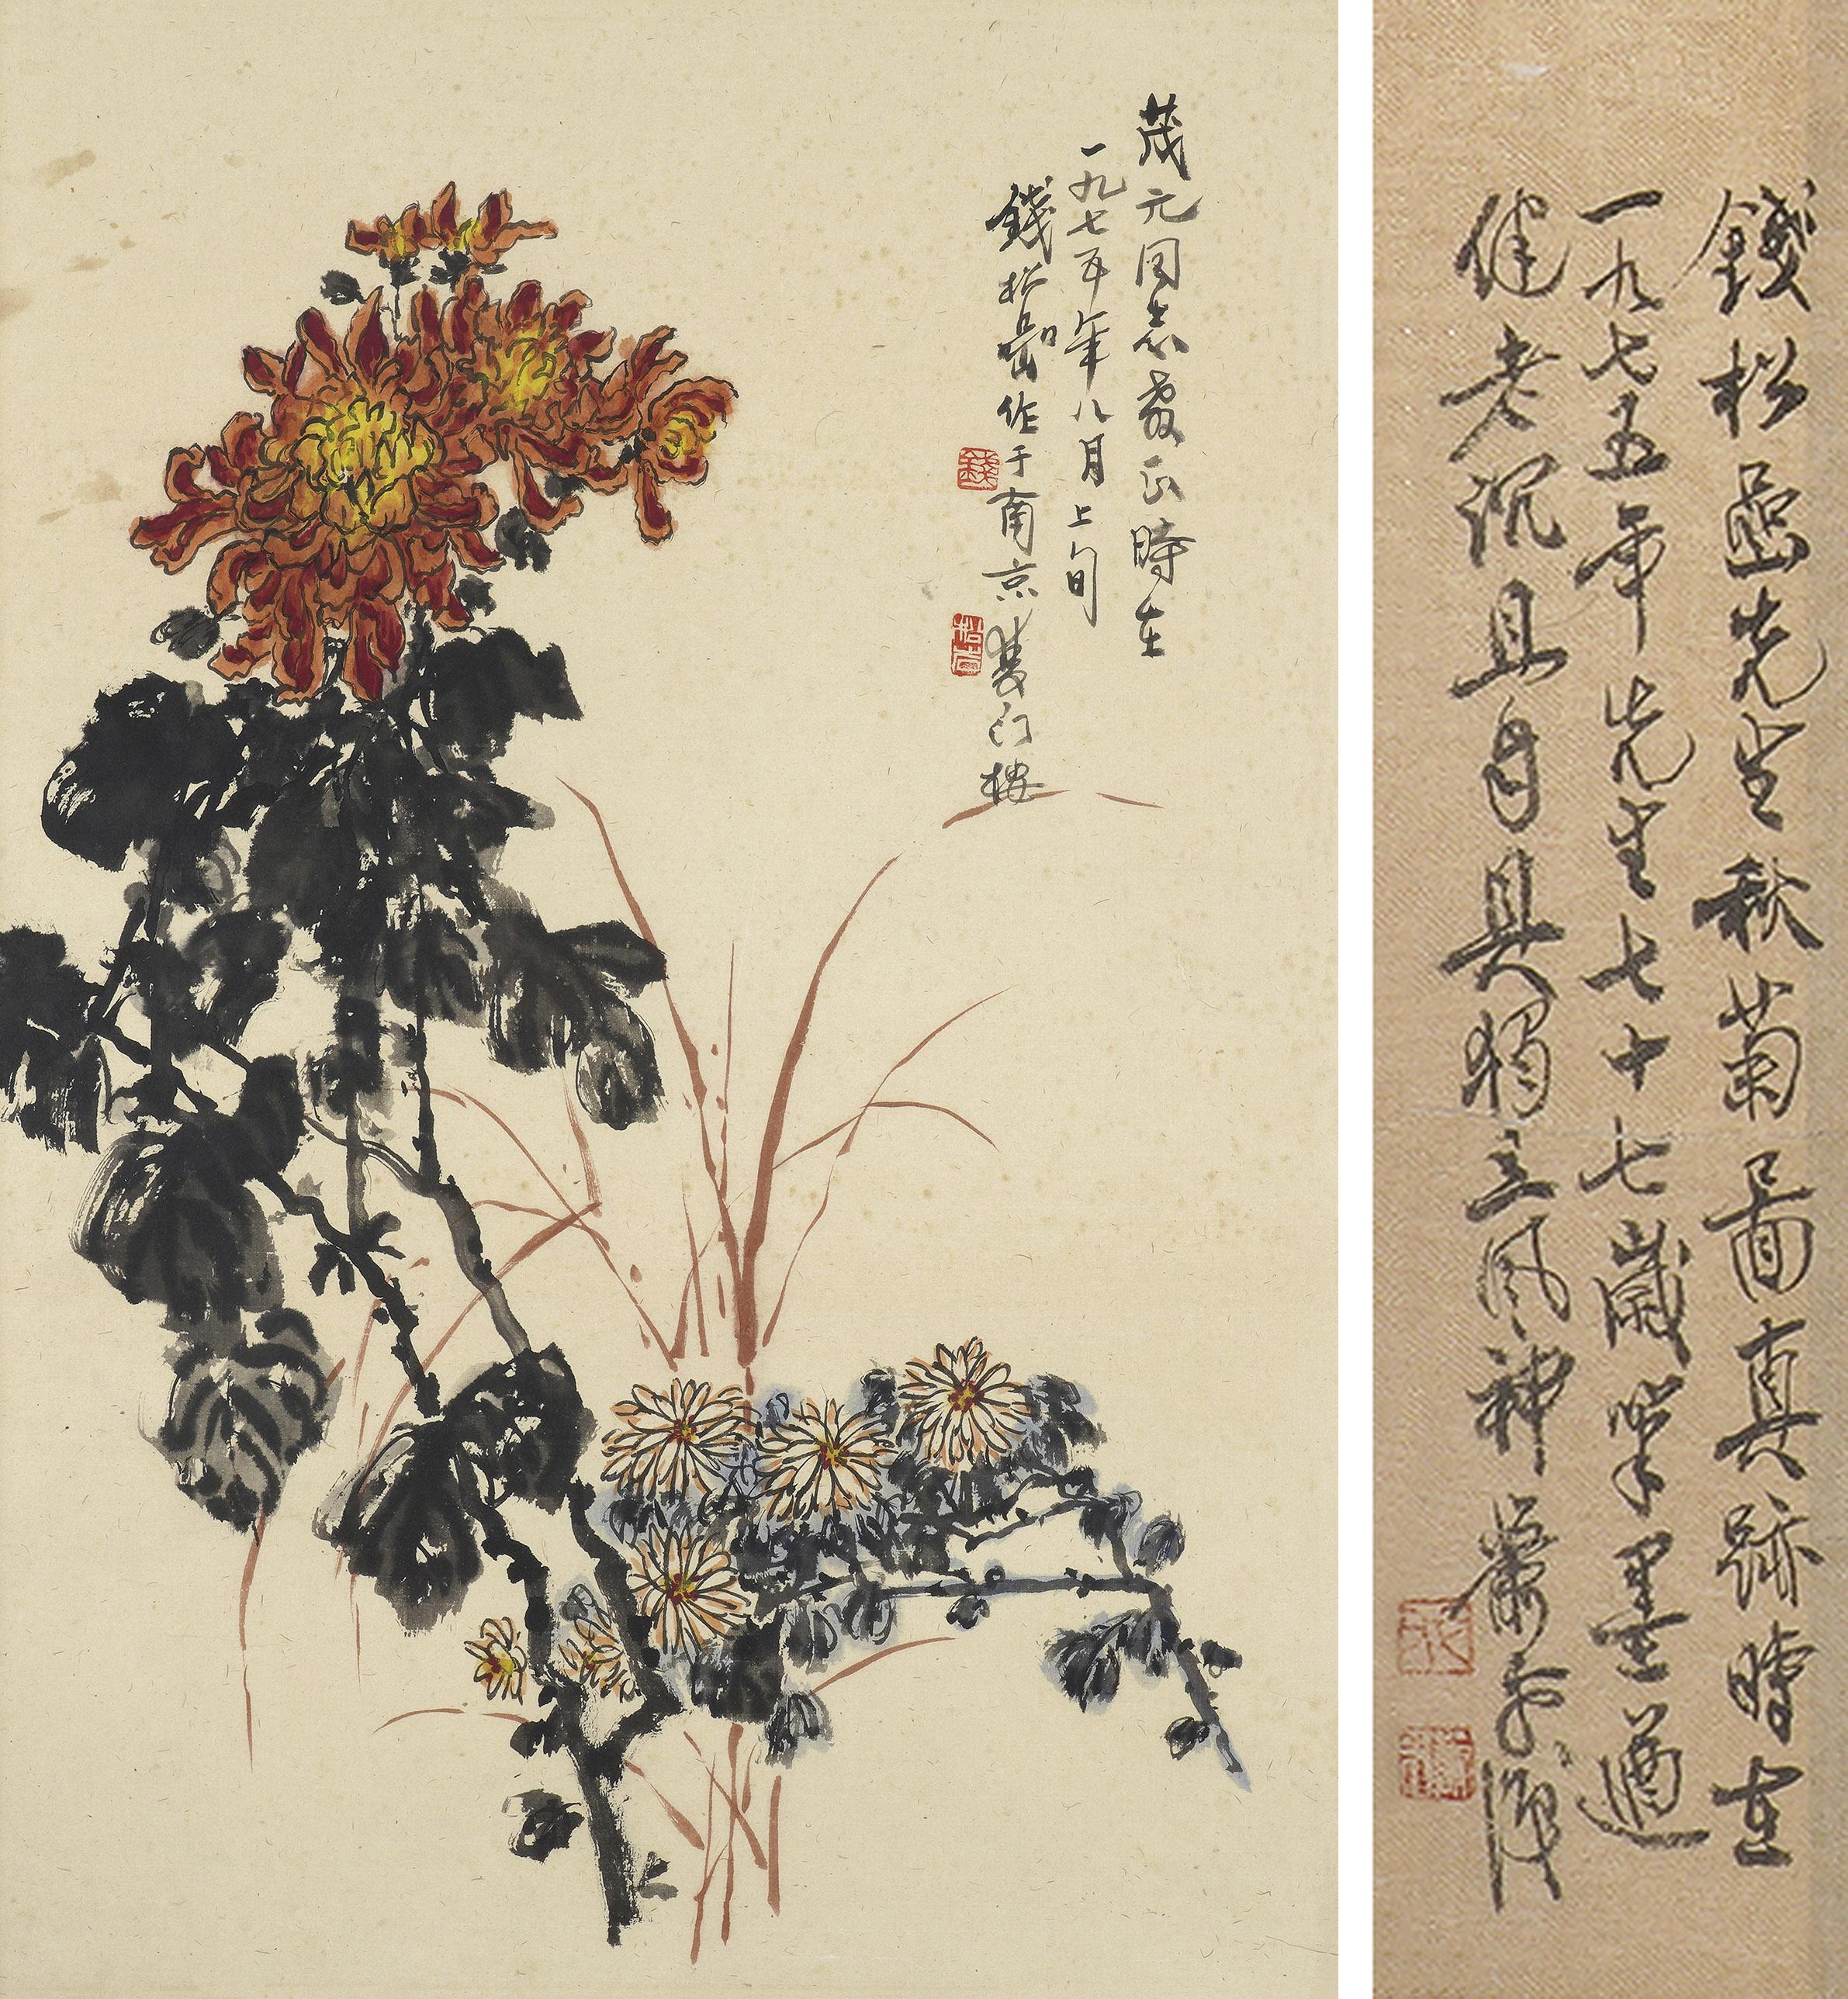 茂元同志教正時在
一九七五年八月上旬
錢松嵒作于南京雙门樓
錢
松嵒
錢松嵒先生秋菊圖真跡時在
一九七五年先生七十七歲筆墨遒
健老沉且自具獨立風神蕭平